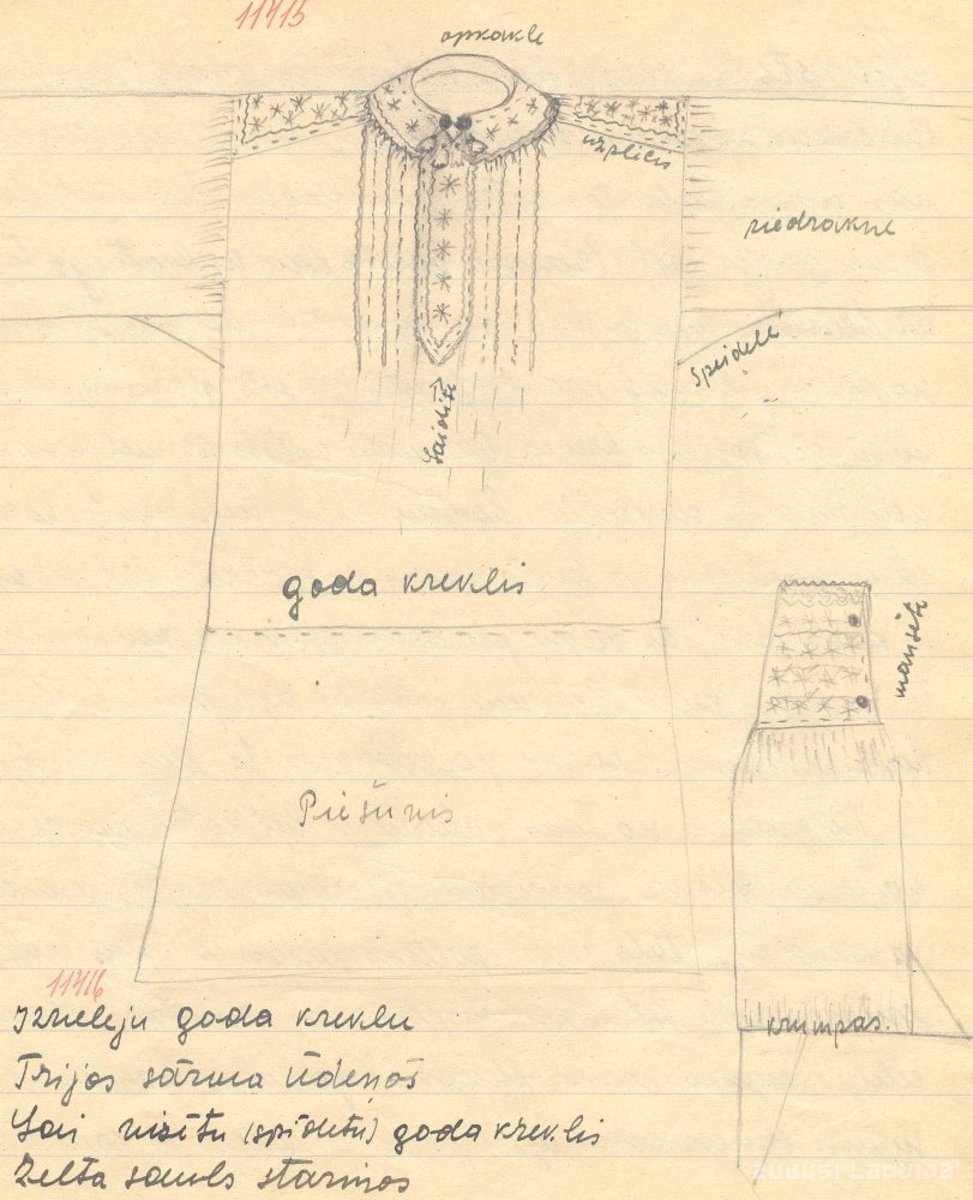 11415
apkakle
uzplicis
piedrokne
speidele
Saidīte
goda kreklis
manšete
Piešūnis
11416
krumpas.
Izveleju goda kreklu
Trijos sārma ūdeņos
Lai vizētu (spīdētu) goda kreklis
Zelta sauls starinos
ZUDUSI LATVIJA